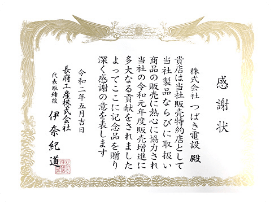 感謝状
株式会社 つばき電設 殿
貴店は当社販売特約店として
当社製品ならびに取扱い
商品の販売に熱心に協力され
当社の令和元年度販売増進に
多大なる貢献をされました
よってここに記念品を贈り
深く感謝の意を表します
令和二年五月吉日
長府工産株式会社
代表取締役 伊奈紀道